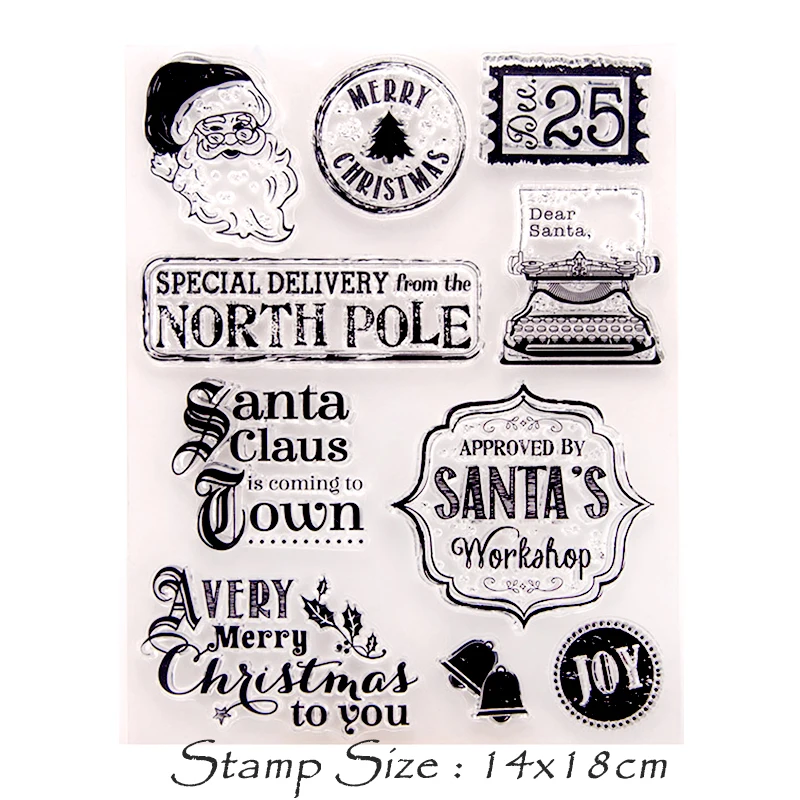 MERRY
CHRISTMAS
Dec. 25
Dear
Santa,
SPECIAL DELIVERY from the
NORTH POLE
Santa
Claus
is coming to
Town
APPROVED BY
SANTA'S
Workshop
A VERY
Merry
Christmas
to you
JOY
Stamp Size : 14x18cm